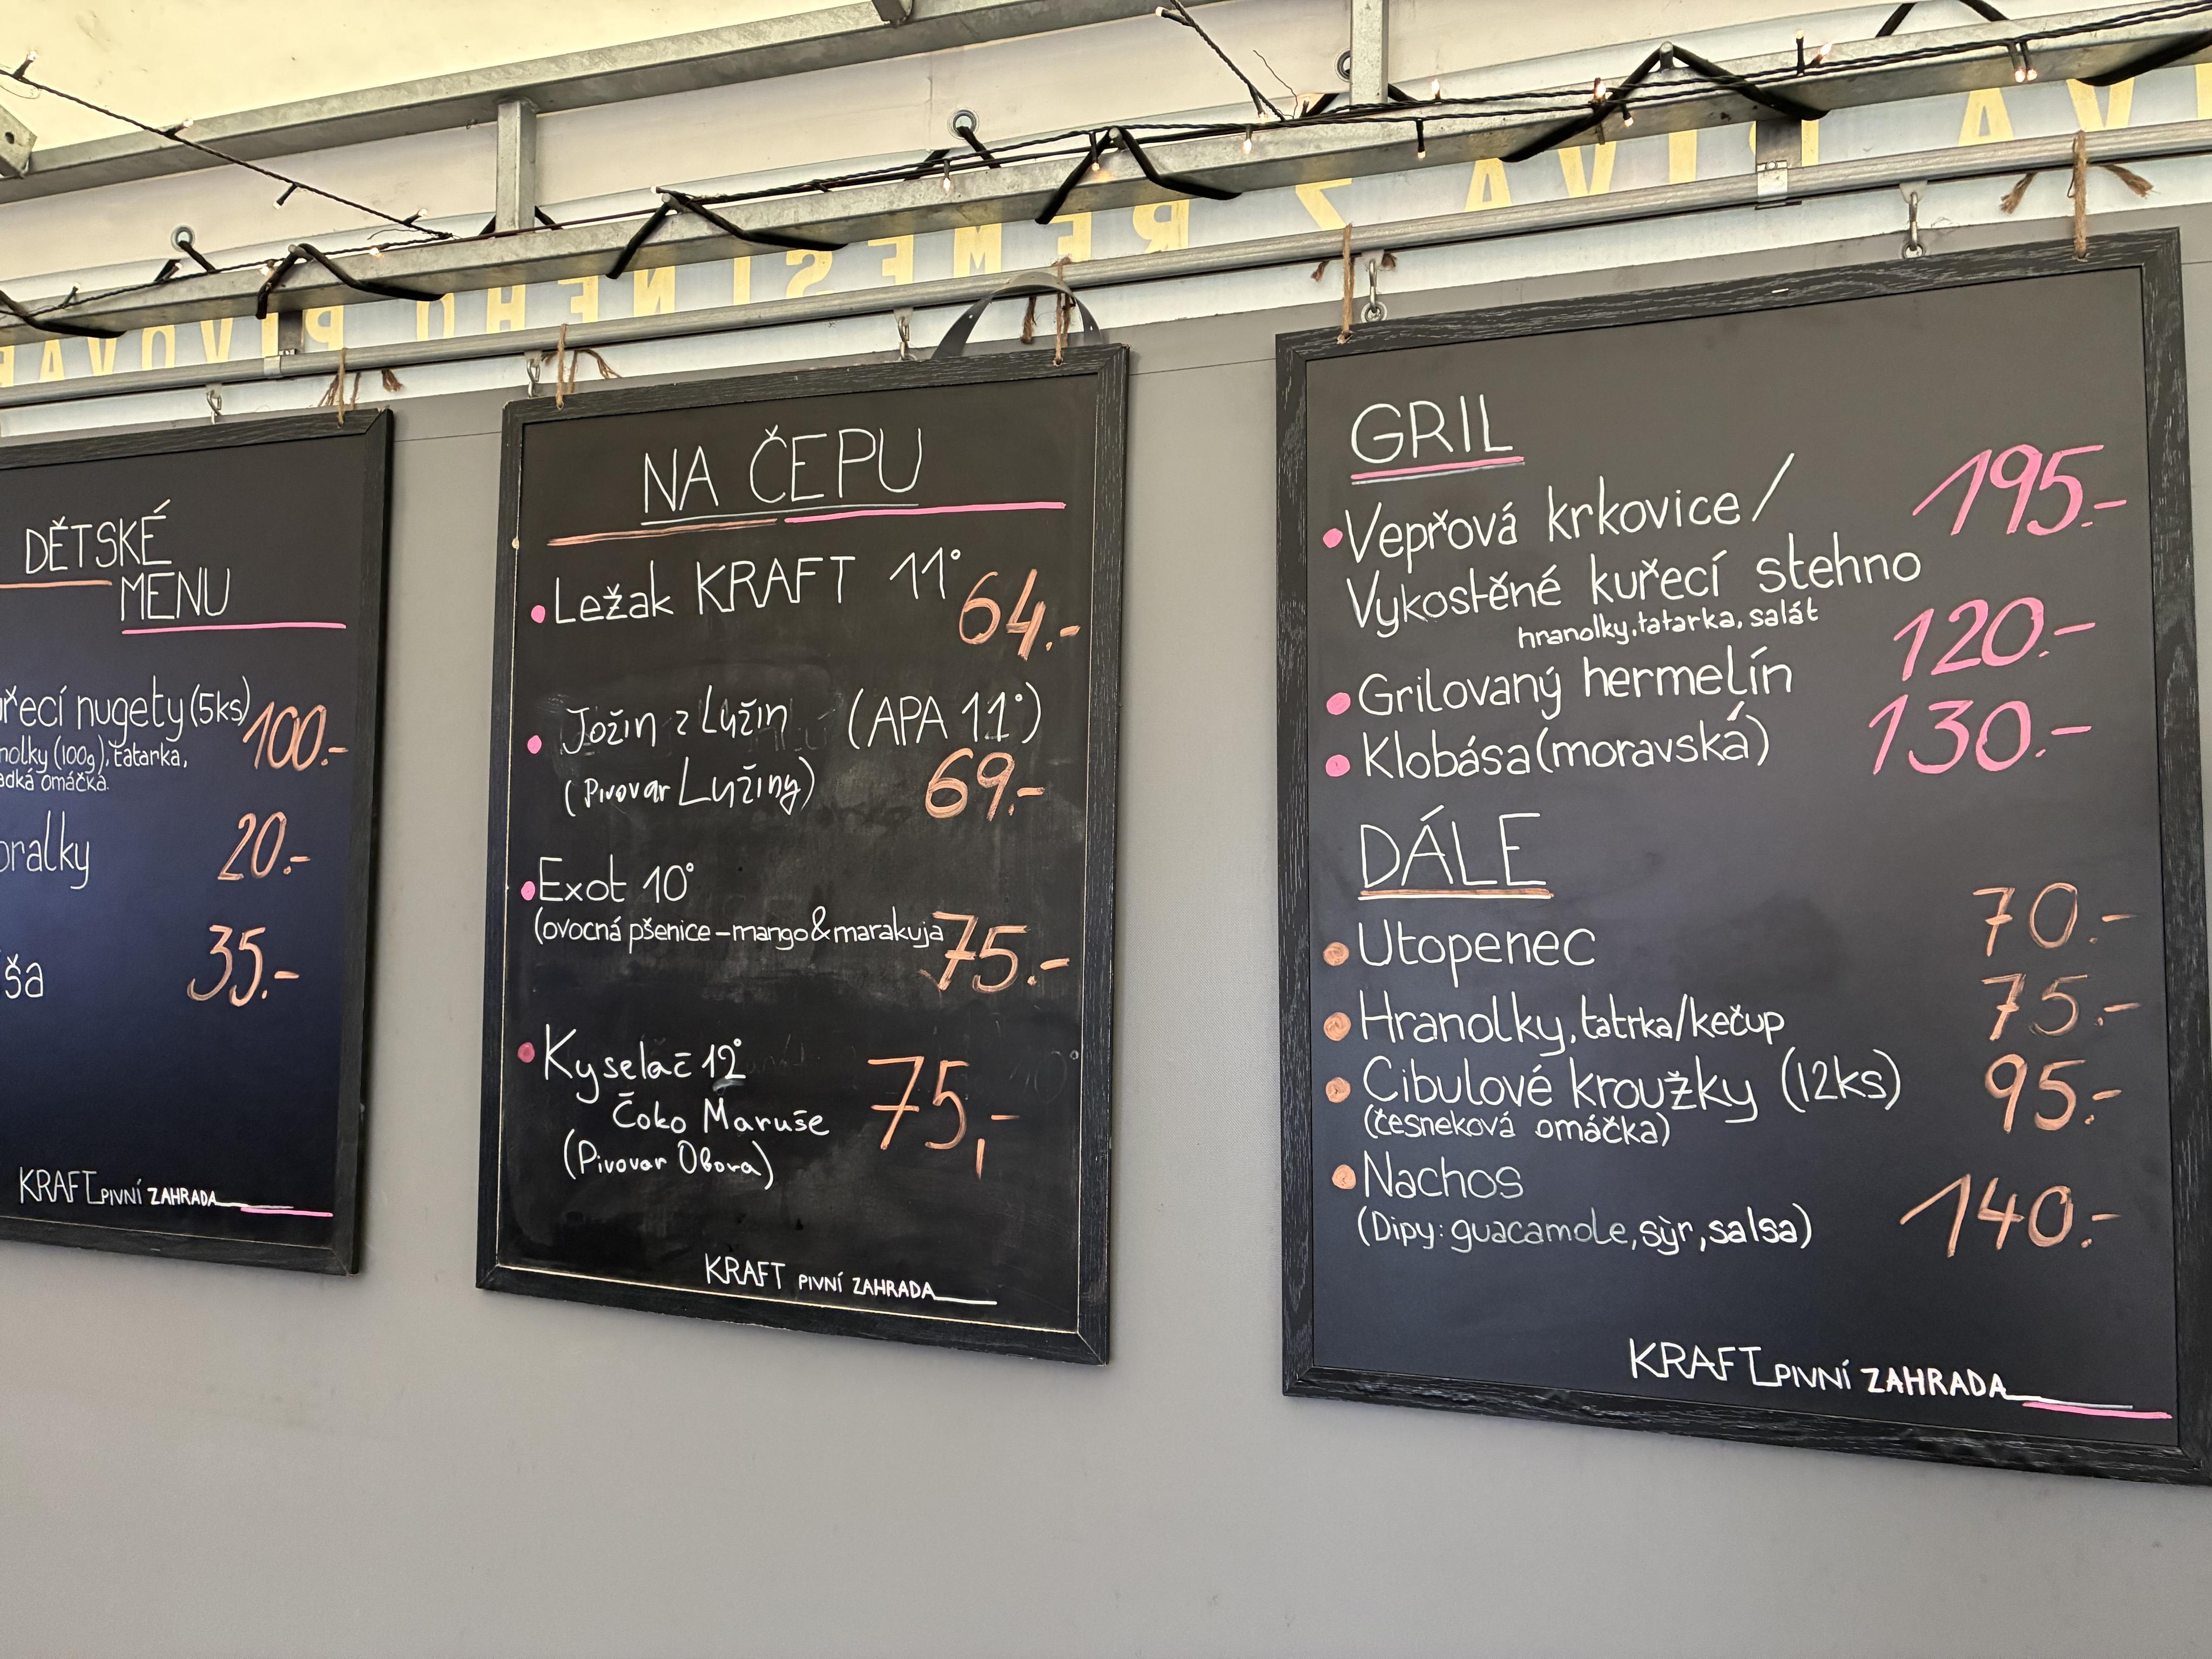 PIVA Z ŘEMESLNÉHO PIVOVARU
DĚTSKÉ
MENU
nugety (5ks) 100.-
(100g), tatarka,
omáčka.
20.-
35.-
KRAFT PIVNÍ ZAHRADA
NA ČEPU
Ležak KRAFT 11° 64.-
Jožin z Lužin (APA 11°)
(Pivovar Lužiny) 69.-
Exot 10°
(ovocná pšenice-mango&marakuja 75.-
Kyselač 12°
Čoko Maruše 75,-
(Pivovar Obora)
KRAFT PIVNÍ ZAHRADA
GRIL
Vepřová krkovice / 195.-
Vykostěné kuřecí stehno
hranolky, tatarka, salát
Grilovaný hermelín 120.-
Klobása (moravská) 130.-
DÁLE
Utopenec 70.-
Hranolky, tatrka/kečup 75.-
Cibulové kroužky (12ks) 95.-
(česneková omáčka)
Nachos
(Dipy: guacamole, sýr, salsa) 140.-
KRAFT PIVNÍ ZAHRADA